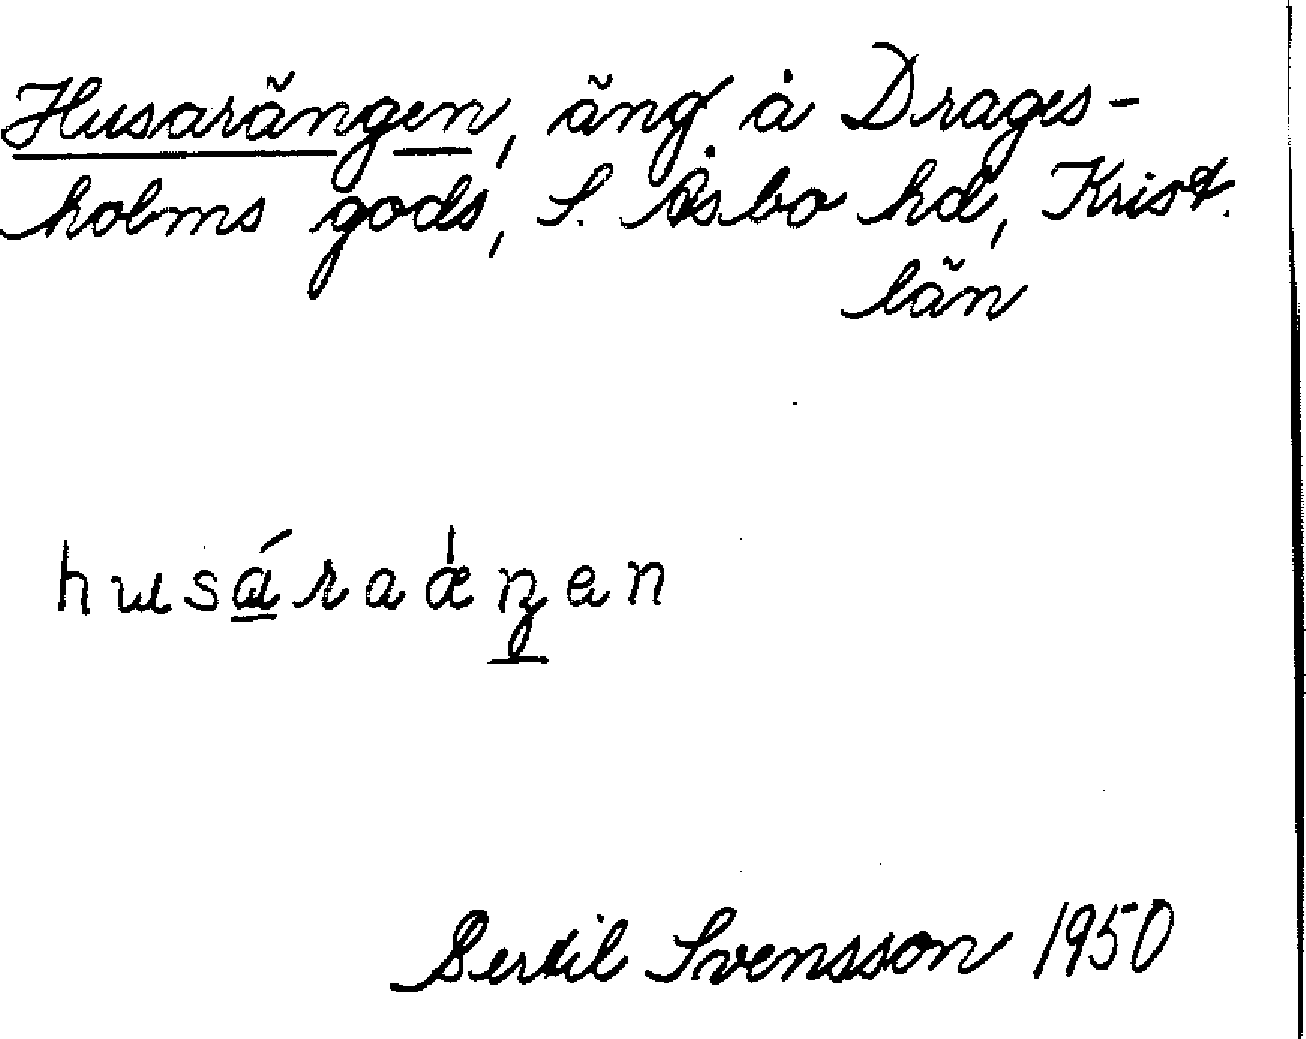 Husarängen, äng å Drages-
holms gods, S. Åsbo hd, Krist.
län
husáraǽŋen
Bertil Svensson 1950